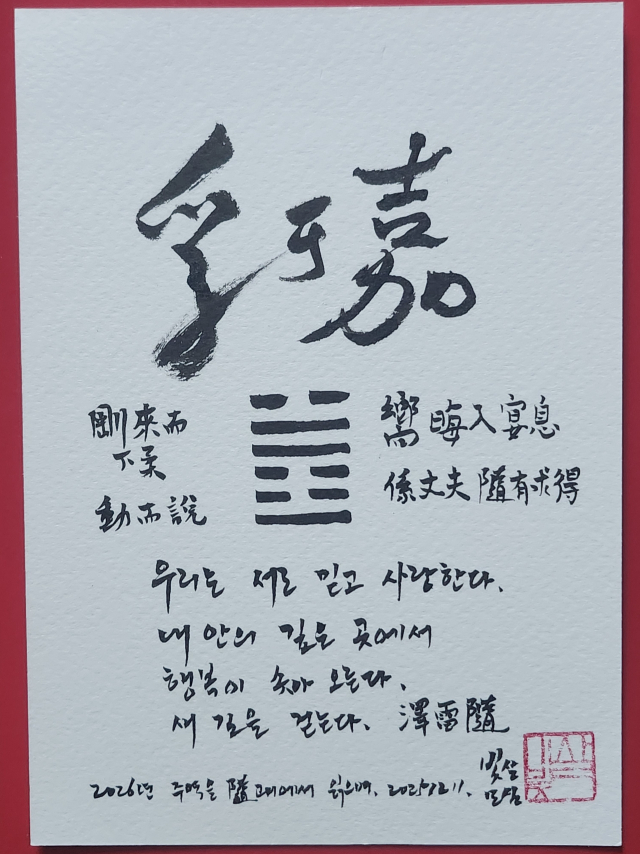 孚于嘉
剛來而
下柔
動而說
嚮晦入宴息
係丈夫 隨有求得
우리는 서로 믿고 사랑한다.
내 안의 깊은 곳에서
행복이 솟아 오른다.
새 길을 걷는다. 澤雷隨
2026년 주역을 隨괘에서 읽으며.
빛살